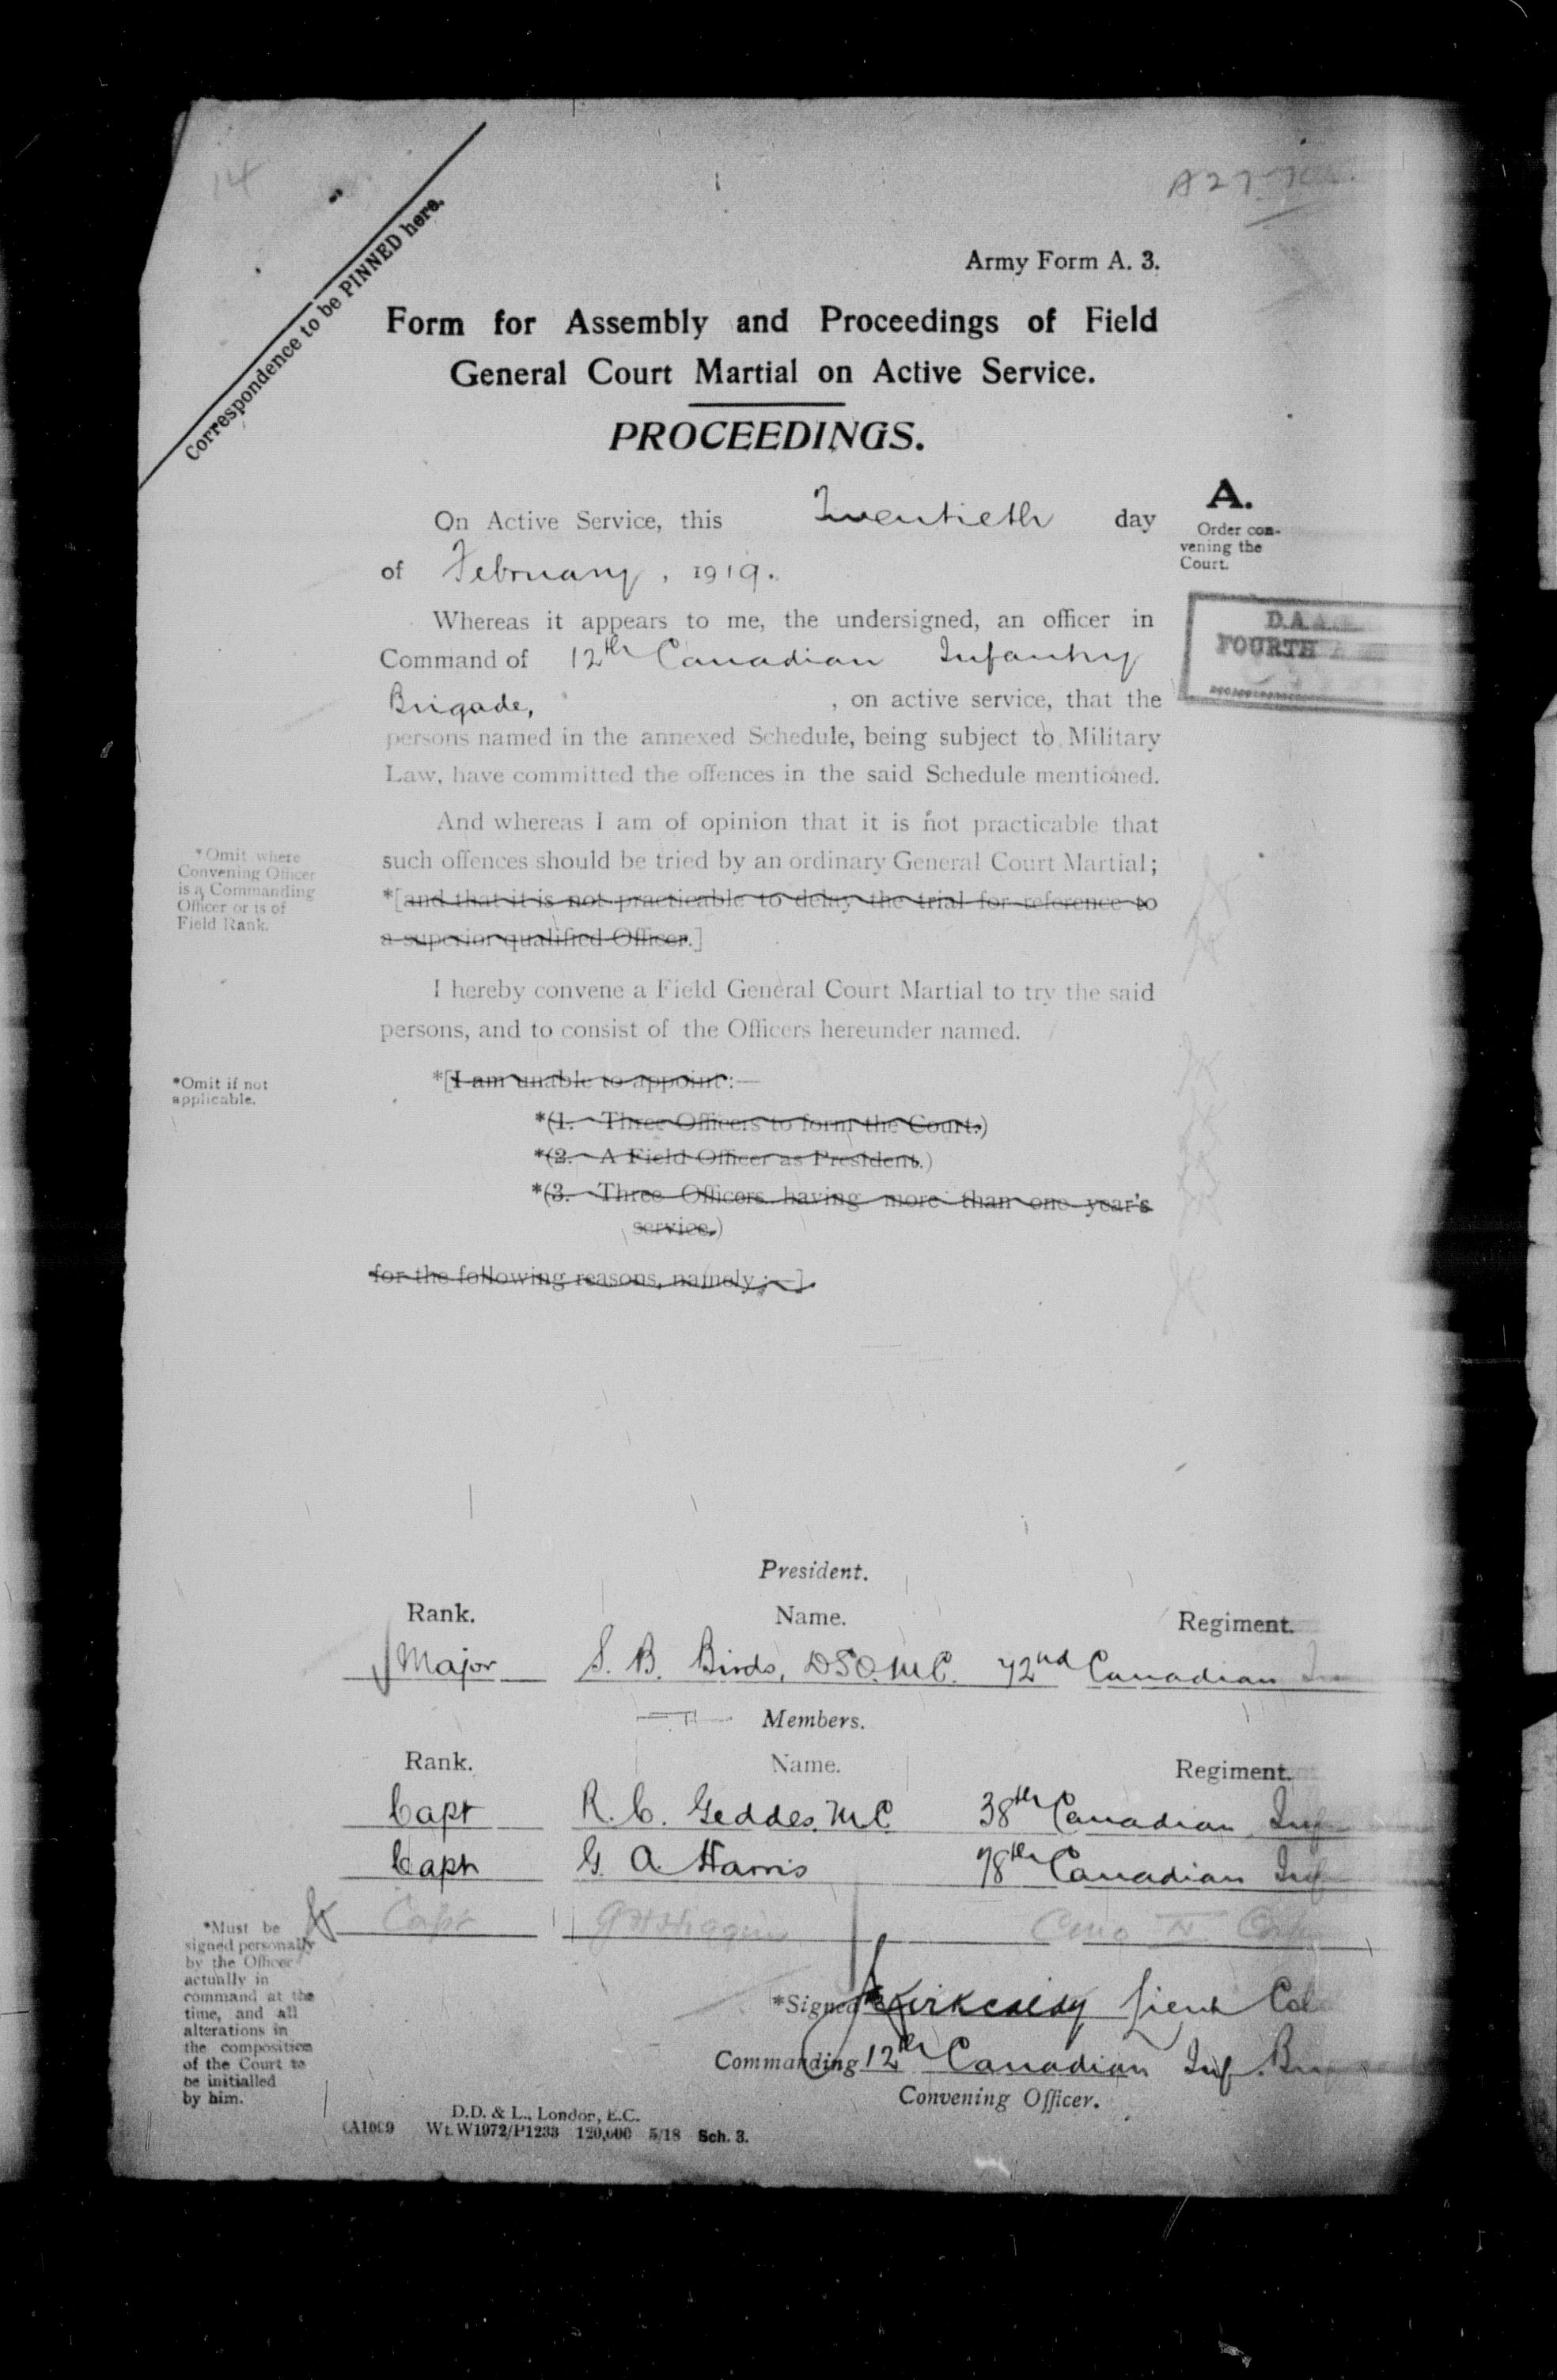 14
A 27
Correspondence to be PINNED here.
Army Form A. 3.
Form for Assembly and Proceedings of Field
General Court Martial on Active Service.
PROCEEDINGS.
On Active Service, this Twentieth day
of February, 1919.
A.
Order con-
vening the
Court.
Whereas it appears to me, the undersigned, an officer in
Command of 12th Canadian Infantry
Brigade, , on active service, that the
persons named in the annexed Schedule, being subject to Military
Law, have committed the offences in the said Schedule mentioned.
D.A.A.
FOURTH
And whereas I am of opinion that it is not practicable that
such offences should be tried by an ordinary General Court Martial;
*[and that it is not practicable to delay the trial for reference to
a superior qualified Officer.]
*Omit where
Convening Officer
is a Commanding
Officer or is of
Field Rank.
I hereby convene a Field General Court Martial to try the said
persons, and to consist of the Officers hereunder named.
*Omit if not
applicable.
*[I am unable to appoint:—
*(1. Three Officers to form the Court.)
*(2. A Field Officer as President.)
*(3. Three Officers having more than one year's
service.)
for the following reasons, namely:—].
President.
Rank. Name. Regiment.
Major S. B. Birds, DSO. MC. 72nd Canadian
Members.
Rank. Name. Regiment.
Capt R. C. Geddes. MC 38th Canadian Inf
Capt G. A. Harris 78th Canadian Inf
Capt
*Must be
signed personally
by the Officer
actually in
command at the
time, and all
alterations in
the composition
of the Court to
be initialled
by him.
*Signed Kirkcaldy Lieut Col
Commanding 12th Canadian Inf.
Convening Officer.
D.D. & L., London, E.C.
(A1099 Wt. W1972/P1233 120,000 5/18 Sch. 3.